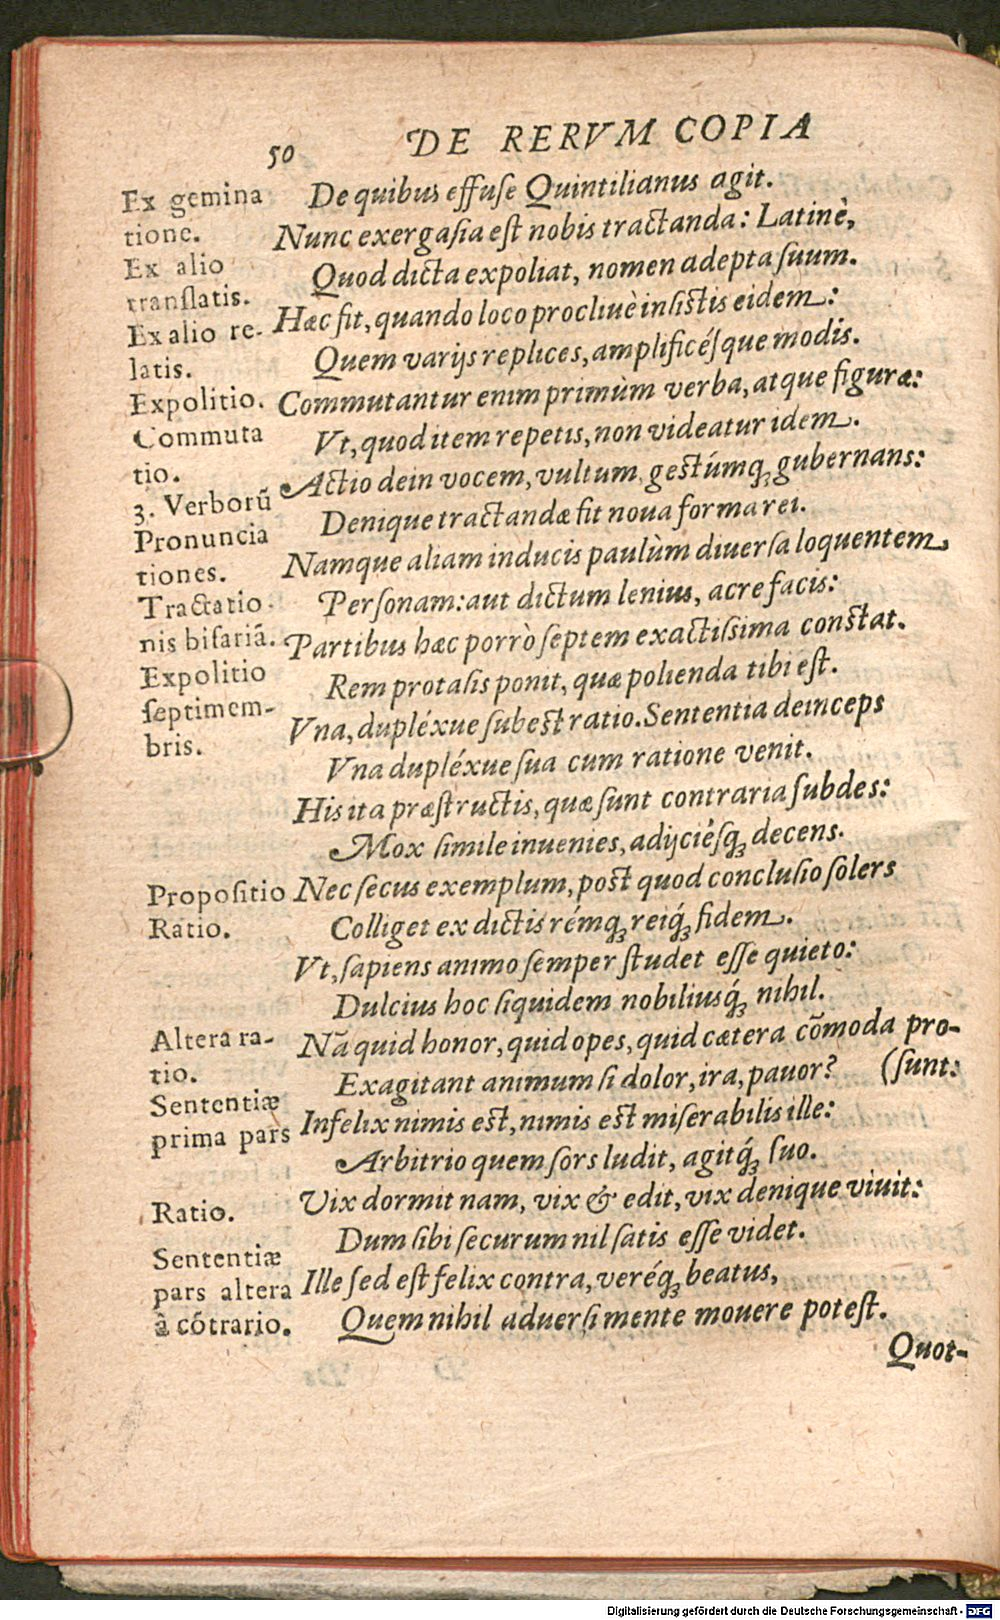 50 DE RERVM COPIA
De quibus effuſe Quintilianus agit.
Nunc exergaſia eſt nobis tractanda: Latinè,
Quod dicta expoliat, nomen adepta ſuum.
Hæc fit, quando loco procliuè inſiſtis eidem:
Quem varijs replices, amplificéſque modis.
Commutantur enim primùm verba, atque figuræ:
Vt, quod item repetis, non videatur idem.
Actio dein vocem, vultum, geſtúmq́; gubernans:
Denique tractandæ fit noua forma rei.
Namque aliam inducis paulùm diuerſa loquentem
Perſonam: aut dictum lenius, acre facis:
Partibus hæc porrò ſeptem exactiſsima conſtat.
Rem protaſis ponit, quæ polienda tibi eſt.
Vna, dupléxue ſubeſt ratio. Sententia deinceps
Vna dupléxue ſua cum ratione venit.
His ita præſtructis, quæ ſunt contraria ſubdes:
Mox ſimile inuenies, adijciéſq; decens.
Nec ſecus exemplum, poſt quod concluſio ſolers
Colliget ex dictis rémq; reiq́; fidem.
Vt, ſapiens animo ſemper ſtudet eſſe quieto:
Dulcius hoc ſiquidem nobiliusq́; nihil.
Nã quid honor, quid opes, quid cætera cõmoda pro-
Exagitant animum ſi dolor, ira, pauor? (ſunt:
Infelix nimis eſt, nimis eſt miſerabilis ille:
Arbitrio quem ſors ludit, agitq́; ſuo.
Vix dormit nam, vix & edit, vix denique viuit:
Dum ſibi ſecurum nil ſatis eſſe videt.
Ille ſed eſt felix contra, veréq; beatus,
Quem nihil aduerſi mente mouere poteſt.
Quot-
Ex gemina
tione.
Ex alio
tranſlatis.
Ex alio re-
latis.
Expolitio.
Commuta
tio.
3. Verborũ
Pronuncia
tiones.
Tractatio
nis bifariã.
Expolitio
ſeptimem-
bris.
Propoſitio
Ratio.
Altera ra-
tio.
Sententiæ
prima pars
Ratio.
Sententiæ
pars altera
à cõtrario.
Digitalisierung gefördert durch die Deutsche Forschungsgemeinschaft - DFG